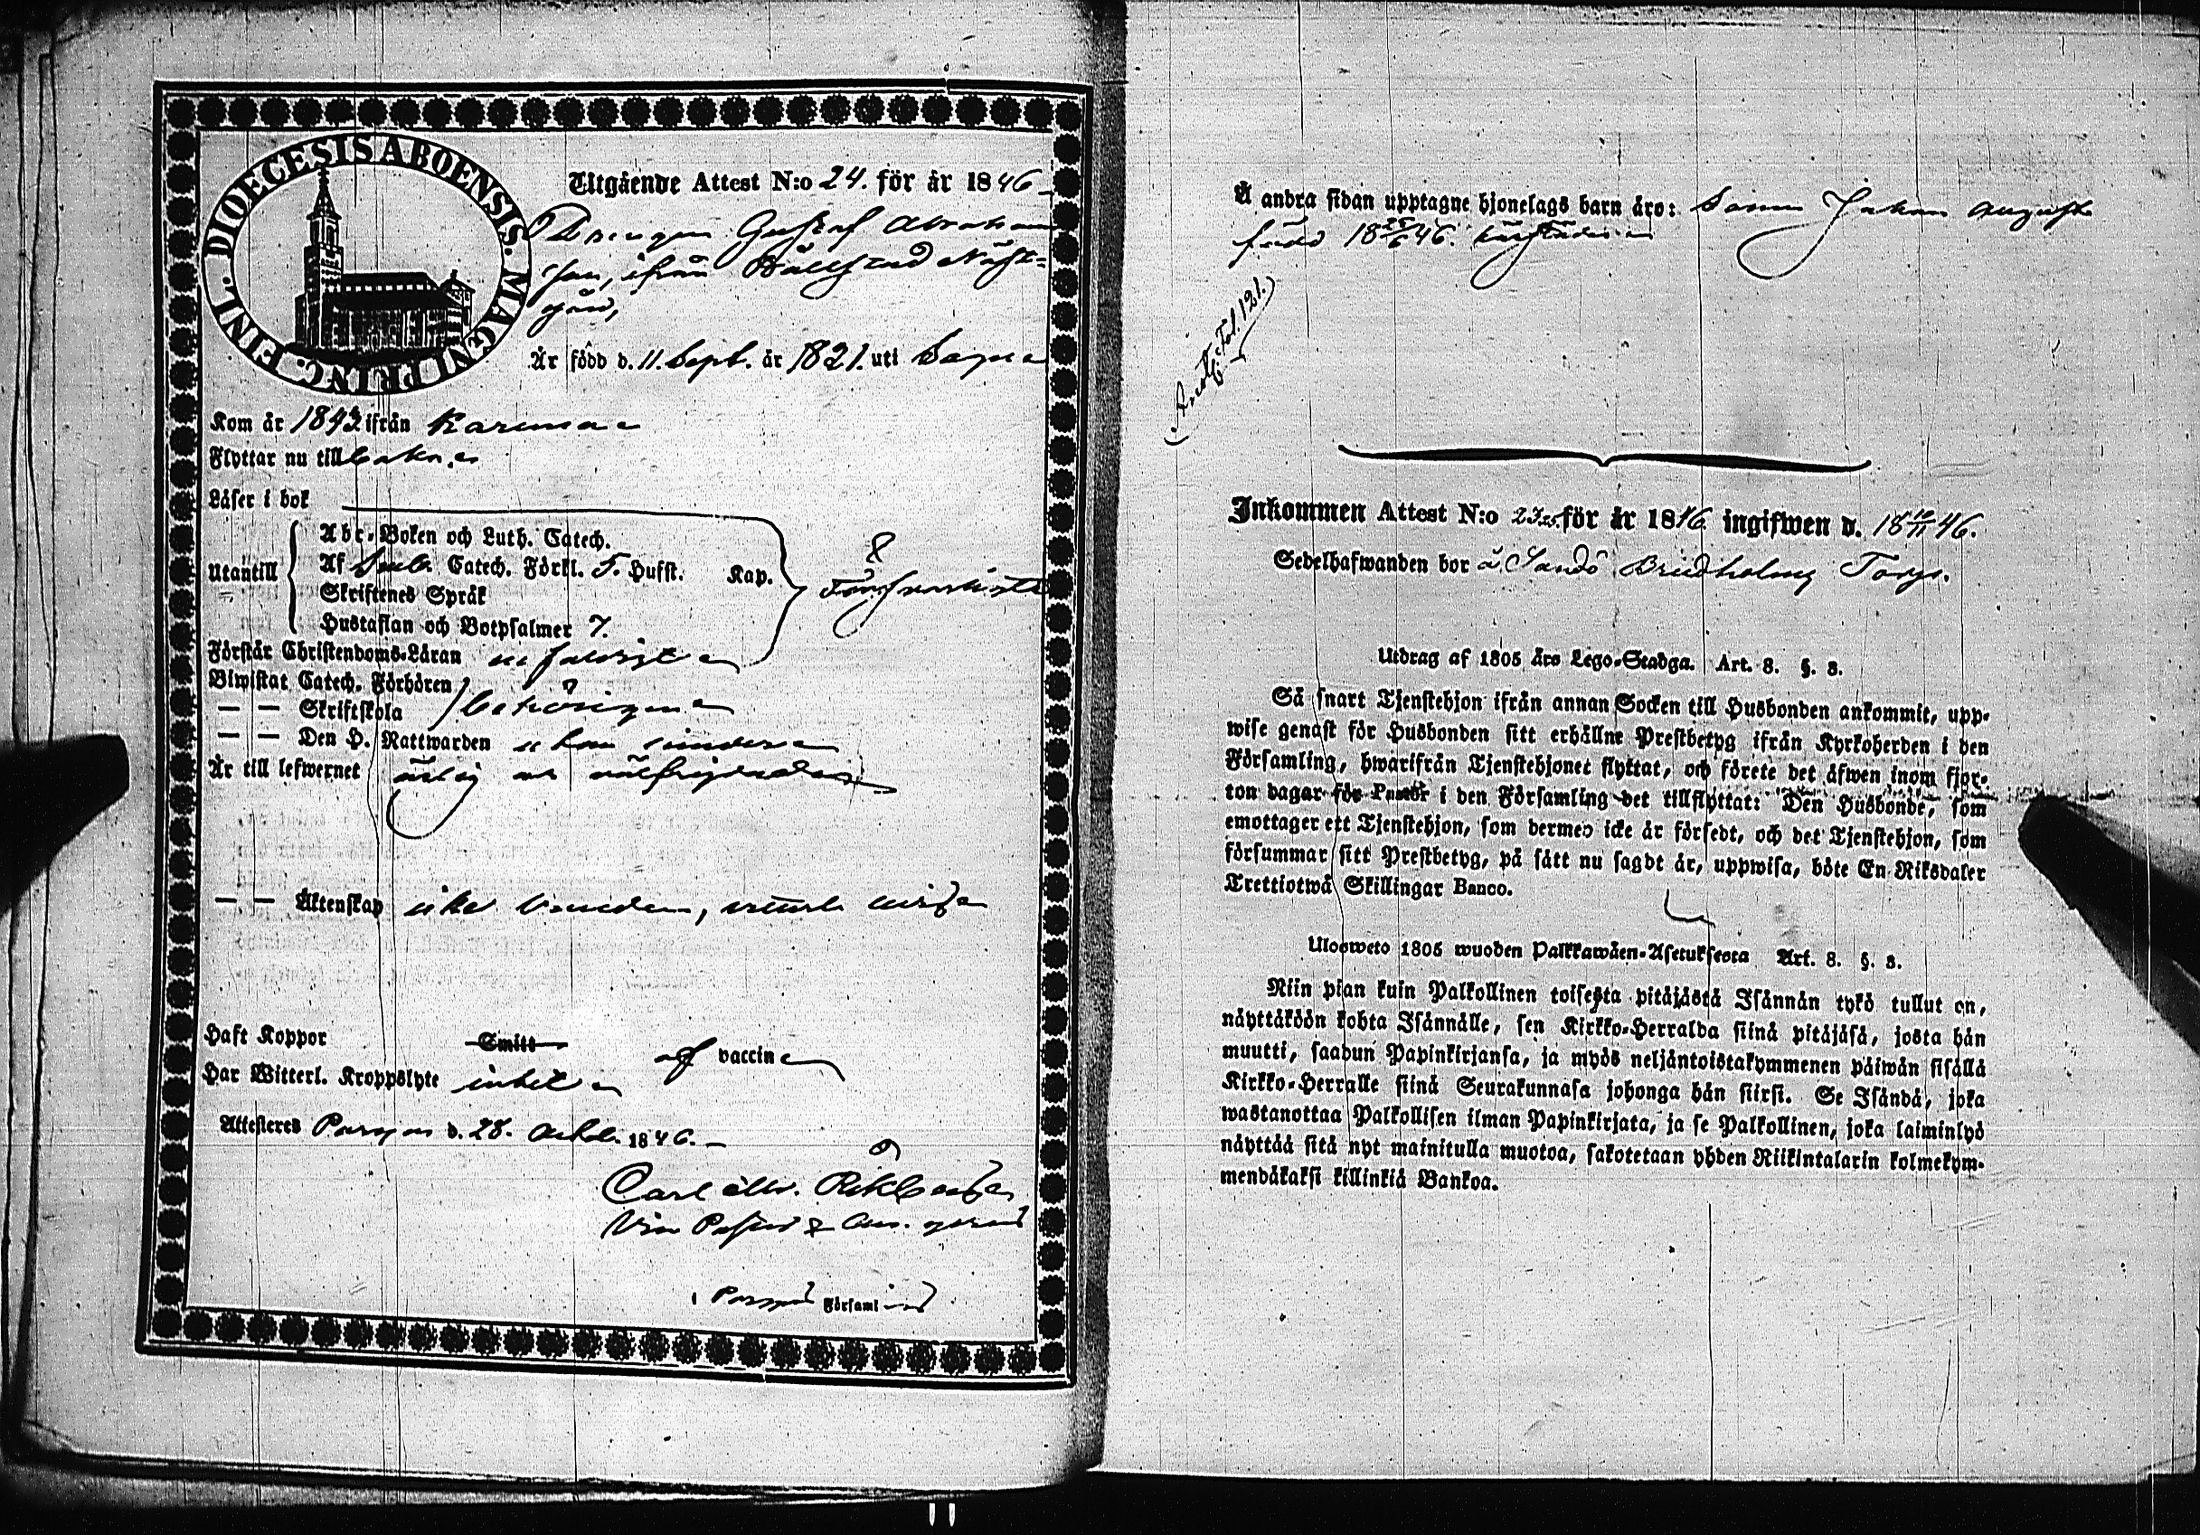 DIOECESIS ABOENSIS. MAGNI PRINC. FINL.
Utgående Attest N:o 24. för år 1846
Drengen Gustaf Abraham
son, ifrån Näst-
gård,
Är född d. 11. Sept. år 1821. uti Sagu
Kom år 1843 ifrån Karuna
Flyttar nu till
Läser i bok
Utantill
Abc-Boken och Luth. Catech.
Af Sveb. Catech. Förkl. T. Hufst. Kap. 8
Skriftenes Språk
Hustaflan och Botpsalmer 7.
Förstår Christendoms-Läran
Biwistat Catech. Förhören
— — Skriftskola behörigen
— — Den H. Nattwarden
Är till lefwernet ärlig och
— — Äktenskap icke bunden, veterligen
Haft Koppor Smitt af vaccin
Har Witterl. Kroppslyte intet
Attesteras Pargas d. 28. Octob. 1846.
Carl Rikberg
Vice Pastor
i Pargas Församl
Å andra sidan upptagne hjonelags barn äro: Sonen Johan August
född 18 25/6 46.
Fol. 121.
Inkommen Attest N:o 23 för år 1846 ingifwen d. 18 10/11 46.
Sedelhafwanden bor å Sandö Bredholms Torp.
Utdrag af 1805 års Lego-Stadga. Art. 8. §. 3.
Så snart Tjenstehjon ifrån annan Socken till Husbonden ankommit, upp-
wise genast för Husbonden sitt erhållne Prestbetyg ifrån Kyrkoherden i den
Församling, hwarifrån Tjenstehjonet flyttat, och förete det äfwen inom fjor-
ton dagar för Pastor i den Församling det tillflyttat: Den Husbonde, som
emottager ett Tjenstehjon, som dermed icke är försedt, och det Tjenstehjon, som
försummar sitt Prestbetyg, på sätt nu sagdt är, uppwisa, böte En Riksdaler
Trettiotwå Skillingar Banco.
Ulosweto 1805 wuoden Palkkawäen-Asetuksesta Art. 8. §. 3.
Niin pian kuin Palkollinen toisesta pitäjästä Isännän tykö tullut on,
näyttäköön kohta Isännälle, sen Kirkko-Herralda siinä pitäjäsä, josta hän
muutti, saadun Papinkirjansa, ja myös neljäntoistakymmenen päiwän sisällä
Kirkko-Herralle siinä Seurakunnasa johonga hän siirsi. Se Isändä, joka
wastanottaa Palkollisen ilman Papinkirjata, ja se Palkollinen, joka laiminlyö
näyttää sitä nyt mainitulla muotoa, sakotetaan yhden Riikintalarin kolmekym-
mendäkaksi killinkiä Bankoa.